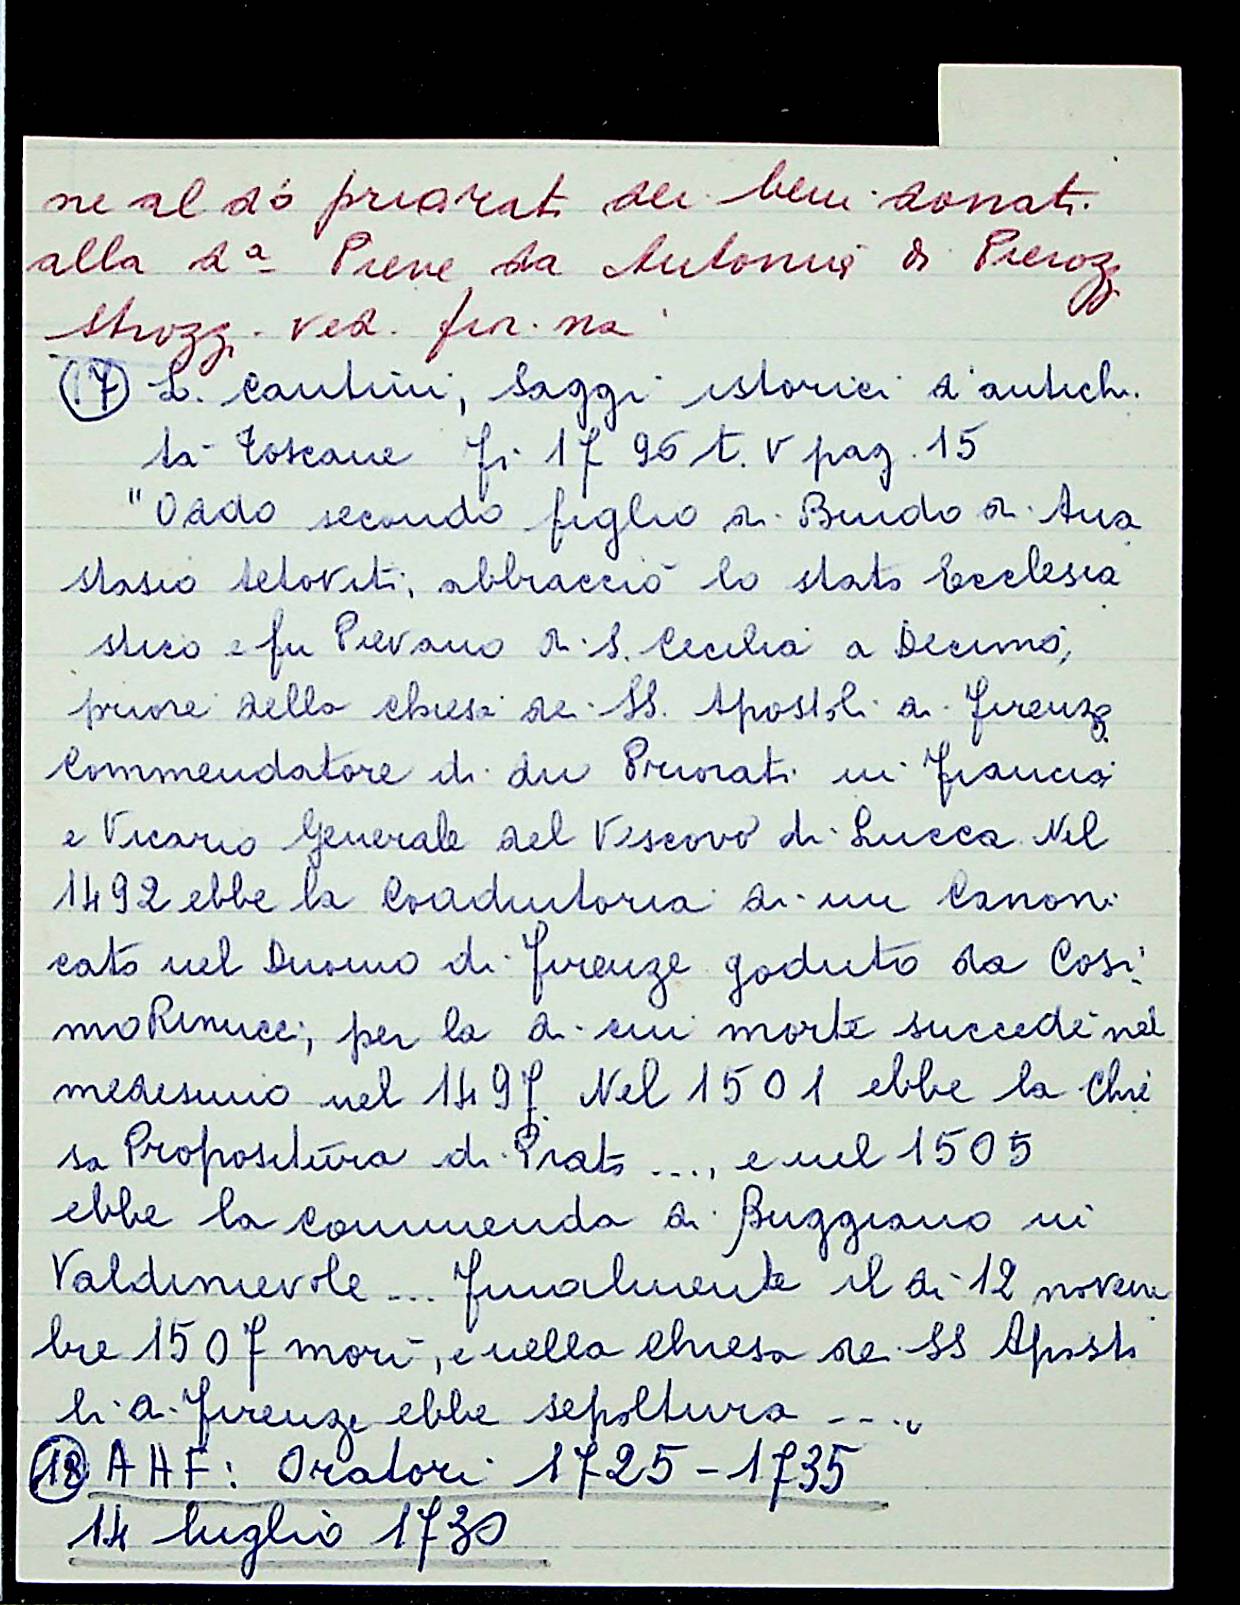 ne al dº priorati dei beni donati
alla dª Pieve da Antonio di Pierozzi
Strozzi ved.
(17) L. Cantini, Saggi istorici d'antichi
tà Toscane Fi 1796 t. V pag. 15
"Oddo secondo figlio di Bindo di Ana
stasio Altoviti, abbracciò lo stato Ecclesia
stico e fu Pievano di S. Cecilia a Decimo,
priore della chiesa dei SS. Apostoli di Firenze
Commendatore di due Priorati in Francia
e Vicario Generale del Vescovo di Lucca. Nel
1492 ebbe la Coadiutoria di un Canoni
cato nel Duomo di Firenze goduto da Cosi
mo Rinucci, per la di cui morte succedè nel
medesimo nel 1497. Nel 1501 ebbe la Chie
sa Propositura di Prato ..., e nel 1505
ebbe la commenda di Buggiano in
Valdinievole ... Finalmente il dì 12 novem
bre 1507 morì, e nella Chiesa dei SS Aposto
li di Firenze ebbe sepoltura ....
(18) AHF: Oratori 1725-1735
14 luglio 1730